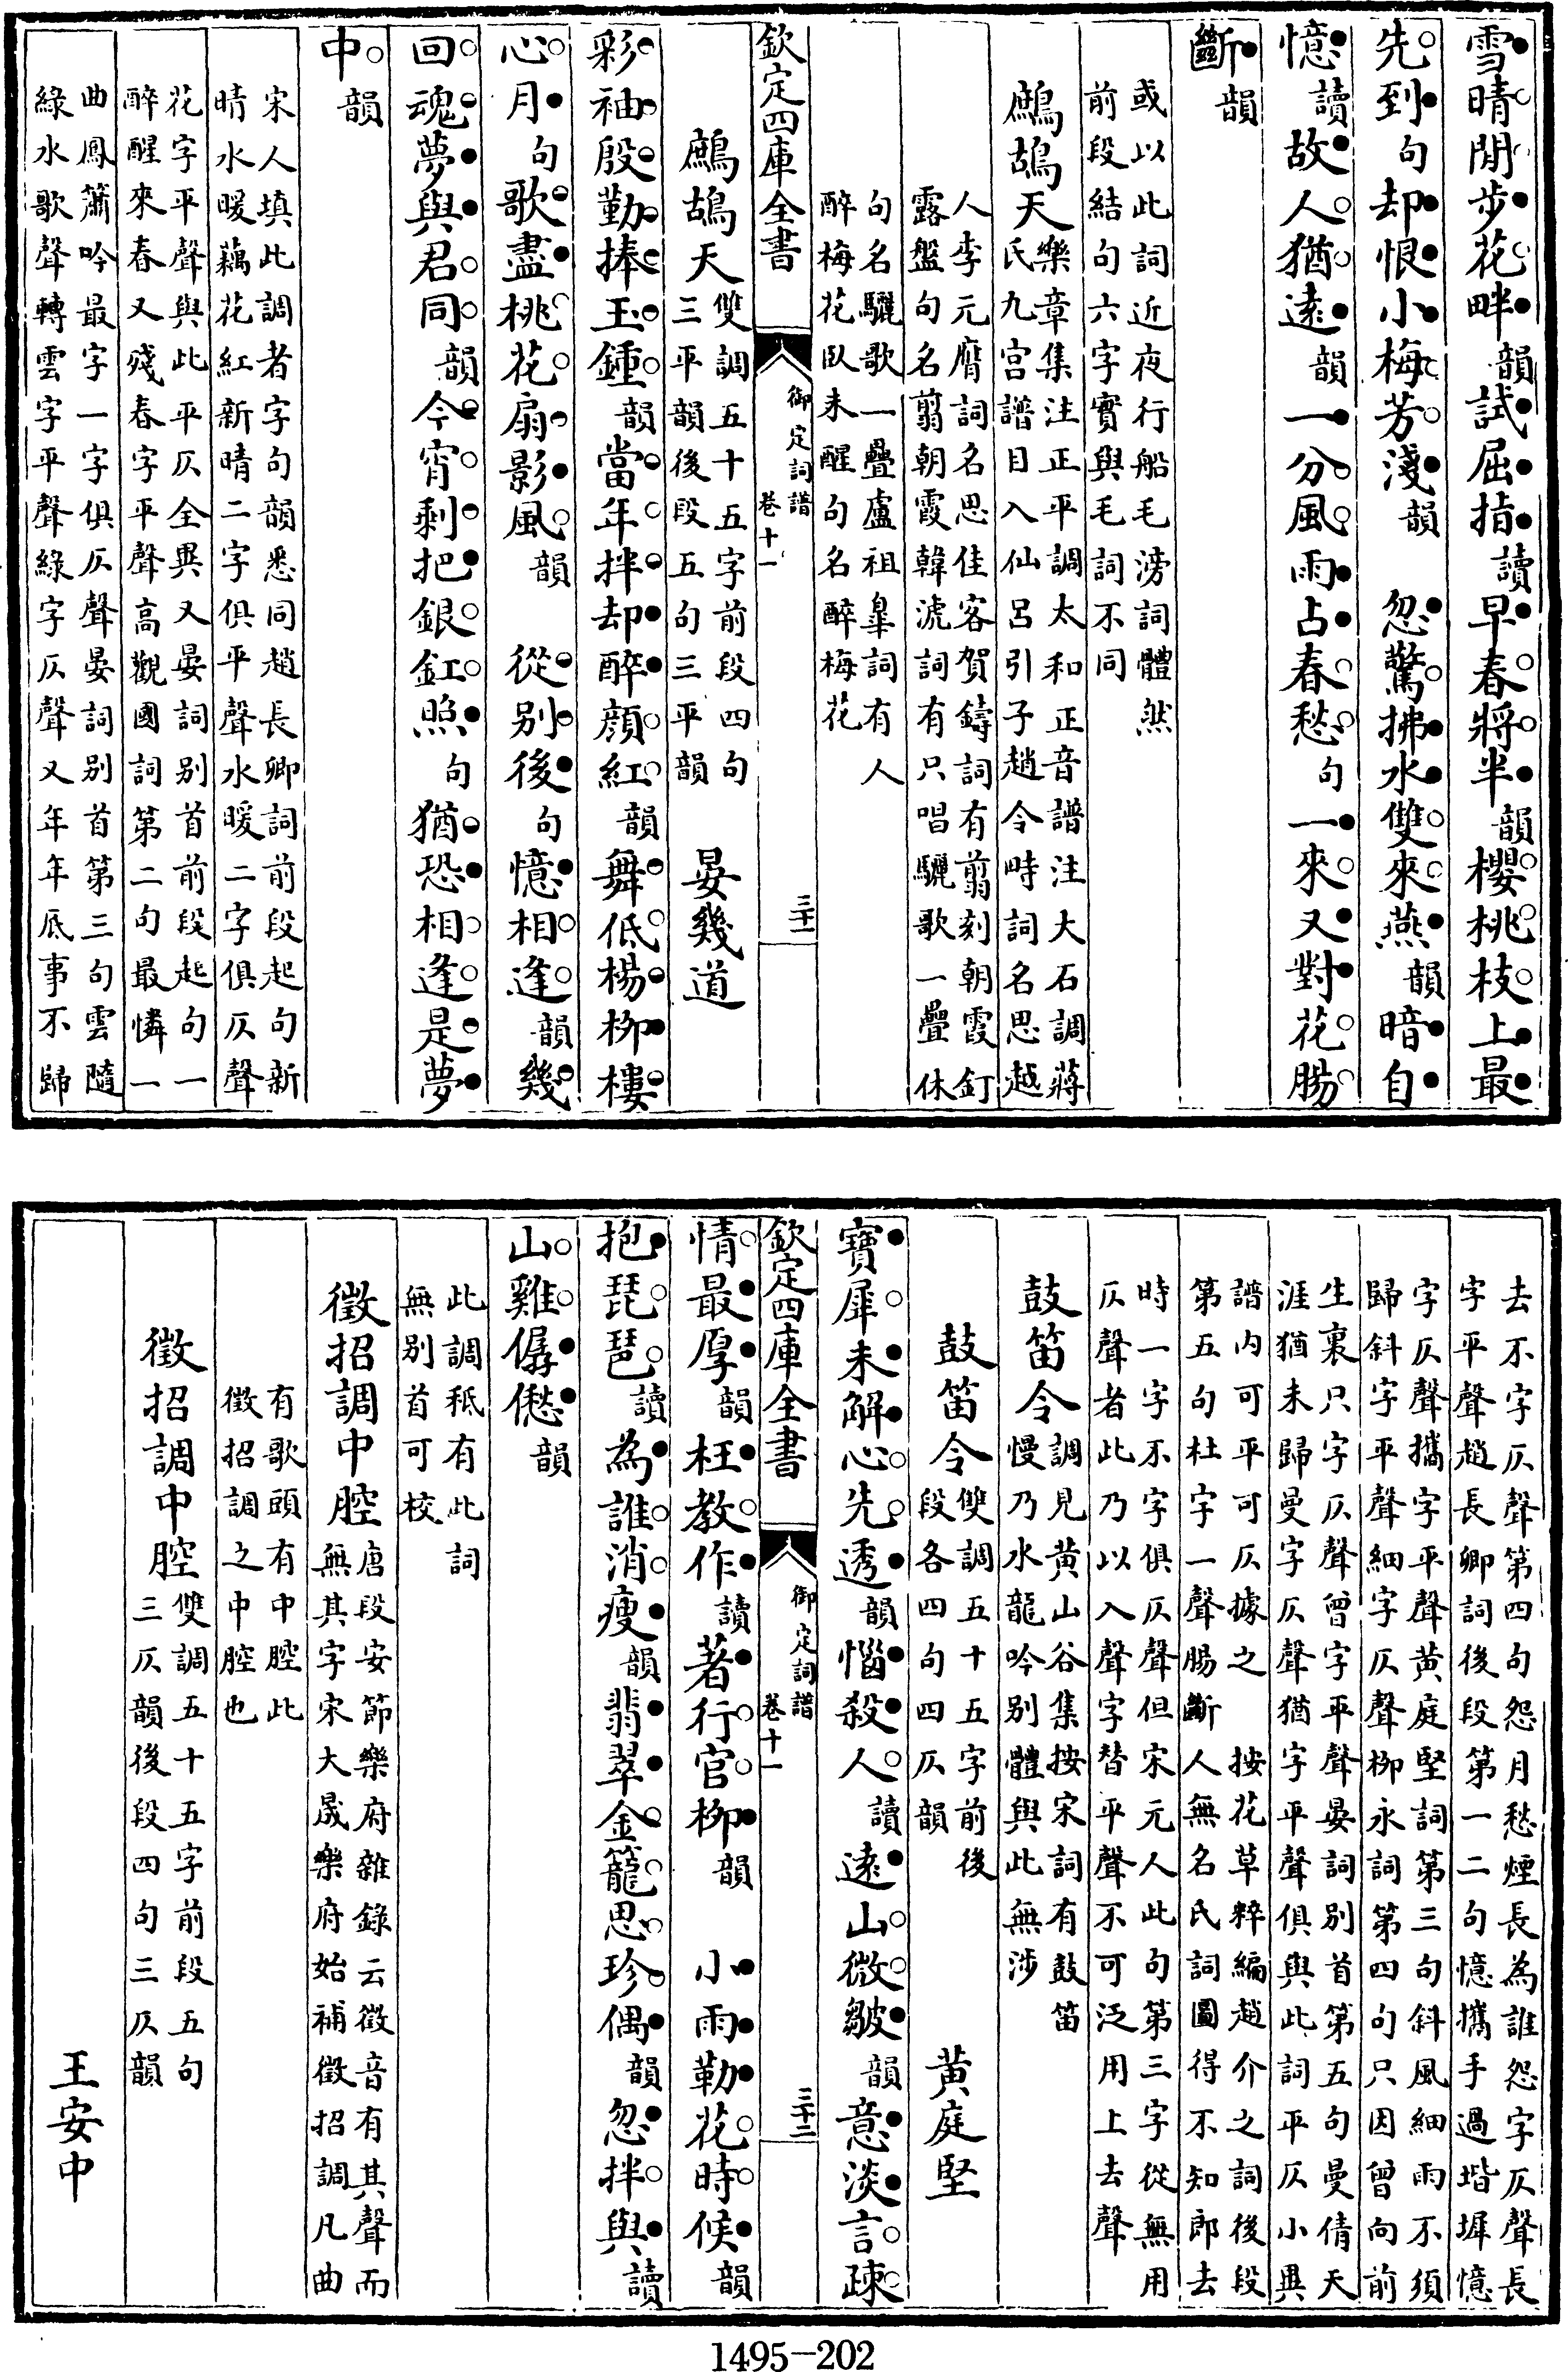 雪晴閒步花畔韻試屈指讀早春將半韻櫻桃枝上最
先到句却恨小梅芳淺韻　忽驚拂水雙來燕韻暗自
憶讀故人猶遠韻一分風雨占春愁句一來又對花腸
斷韻
或以此詞近夜行船毛滂詞體然
前段結句六字實與毛詞不同
鷓鴣天樂章集注正平調太和正音譜注大石調蔣
氏九宮譜目入仙呂引子趙令時詞名思越
人李元膺詞名思佳客賀鑄詞有翦刻朝霞釘
露盤句名翦朝霞韓淲詞有只唱驪歌一疊休
句名驪歌一疊盧祖皐詞有人
醉梅花臥未醒句名醉梅花
欽定四庫全書
御定詞譜
卷十一
三十一
鷓鴣天雙調五十五字前段四句
三平韻後段五句三平韻
晏幾道
彩袖殷勤捧玉鍾韻當年拌却醉顏紅韻舞低楊柳樓
心月句歌盡桃花扇影風韻　從别後句憶相逢韻幾
回魂夢與君同韻今宵剩把銀釭照句猶恐相逢是夢
中韻
宋人填此調者字句韻悉同趙長卿詞前段起句新
晴水暖藕花紅新晴二字俱平聲水暖二字俱仄聲
花字平聲與此平仄全異又晏詞别首前段起句一
醉醒來春又殘春字平聲高觀國詞第二句最憐一
曲鳳簫吟最字一字俱仄聲晏詞别首第三句雲隨
綠水歌聲轉雲字平聲綠字仄聲又年年底事不歸
去不字仄聲第四句怨月愁煙長為誰怨字仄聲長
字平聲趙長卿詞後段第一二句憶攜手過堦墀憶
字仄聲攜字平聲黃庭堅詞第三句斜風細雨不須
歸斜字平聲細字仄聲柳永詞第四句只因曾向前
生裏只字仄聲曾字平聲晏詞别首第五句曼倩天
涯猶未歸曼字仄聲猶字平聲俱與此詞平仄小異
譜内可平可仄據之　按花草粹編趙介之詞後段
第五句杜字一聲腸斷　人無名氏詞圖得不知郎去
時一字不字俱仄聲但宋元人此句第三字從無用
仄聲者此乃以入聲字替平聲不可泛用上去聲
鼓笛令調見黃山谷集按宋詞有鼓笛
慢乃水龍吟别體與此無涉
鼓笛令雙調五十五字前後
段各四句四仄韻
黃庭堅
寶犀未解心先透韻惱殺人讀遠山微皺韻意淡言疎
欽定四庫全書
御定詞譜
卷十一
三十二
情最厚韻枉教作讀著行官柳韻　小雨勒花時候韻
抱琵琶讀為誰消瘦韻翡翠金籠思珍偶韻忽拌與讀
山雞僝僽韻
此調秪有此詞
無别首可校
徵招調中腔唐段安節樂府雜錄云徵音有其聲而
無其字宋大晟樂府始補徵招調凡曲
有歌頭有中腔此
徵招調之中腔也
徵招調中腔雙調五十五字前段五句
三仄韻後段四句三仄韻
王安中
1495-202